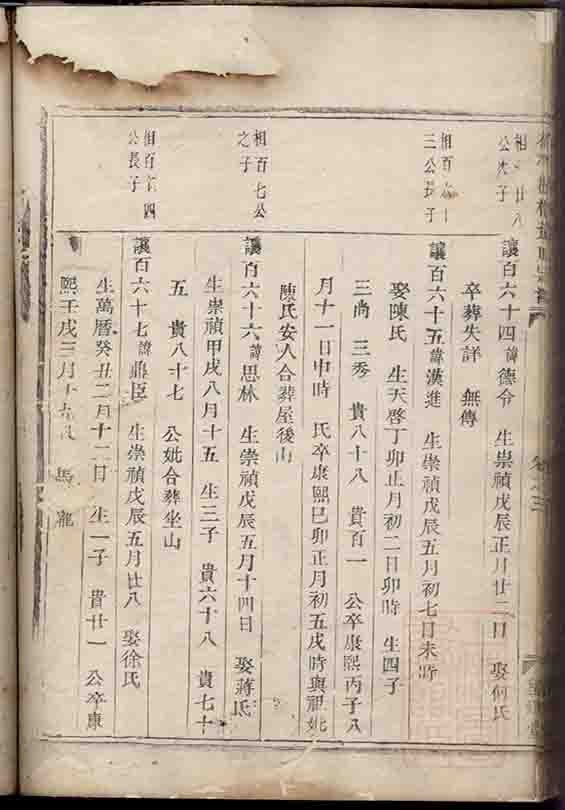 相 廿八
公次子
讓百六十四諱德令 生崇禎戊辰正月廿二日 娶何氏
卒葬失詳 無傳
相百六十
三公長子
讓百六十五諱漢進 生崇禎戊辰五月初七日未時
娶陳氏 生天啓丁卯正月初二日卯時 生四子
三尚 三秀 貴八十八 貴百一 公卒康熙丙子八
月十一日申時 氏卒康熙己卯正月初五戌時與祖妣
陳氏安人合葬屋後山
相百七公
之子
讓百六十六諱思林 生崇禎戊辰五月十四日 娶蔣氏
生崇禎甲戌八月十五 生三子 貴六十八 貴七十
五 貴八十七 公妣合葬坐山
相百七四
公長子
讓百六十七諱鼎臣 生崇禎戊辰五月廿八 娶徐氏
生萬曆癸丑二月十二日 生一子 貴廿一 公卒康
熙壬戌三月十 馬龍